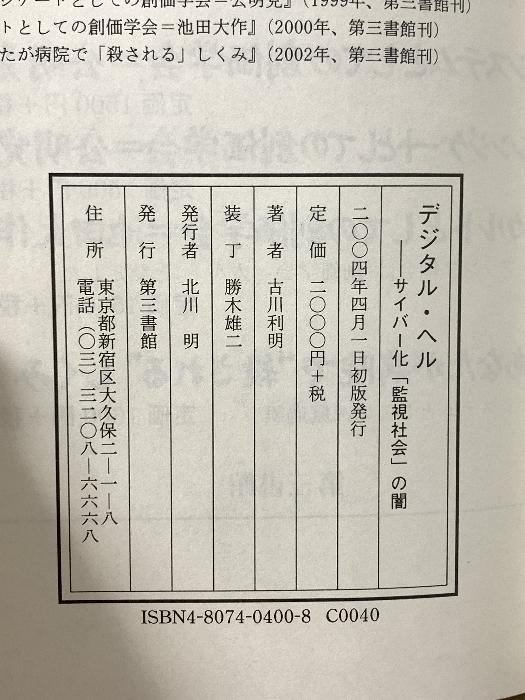 ジケートとしての創価学会=公明党』(1999年、第三書館刊)
トとしての創価学会=池田大作』(2000年、第三書館刊)
たが病院で「殺される」しくみ』(2002年、第三書館刊)
デジタル・ヘル
――サイバー化「監視社会」の闇
二〇〇四年四月一日初版発行
定価 二〇〇〇円+税
著者 古川利明
装丁 勝木雄二
発行者 北川 明
発行 第三書館
住所 東京都新宿区大久保二―一―八
電話(〇三)三二〇八―六六六八
ISBN4-8074-0400-8 C0040